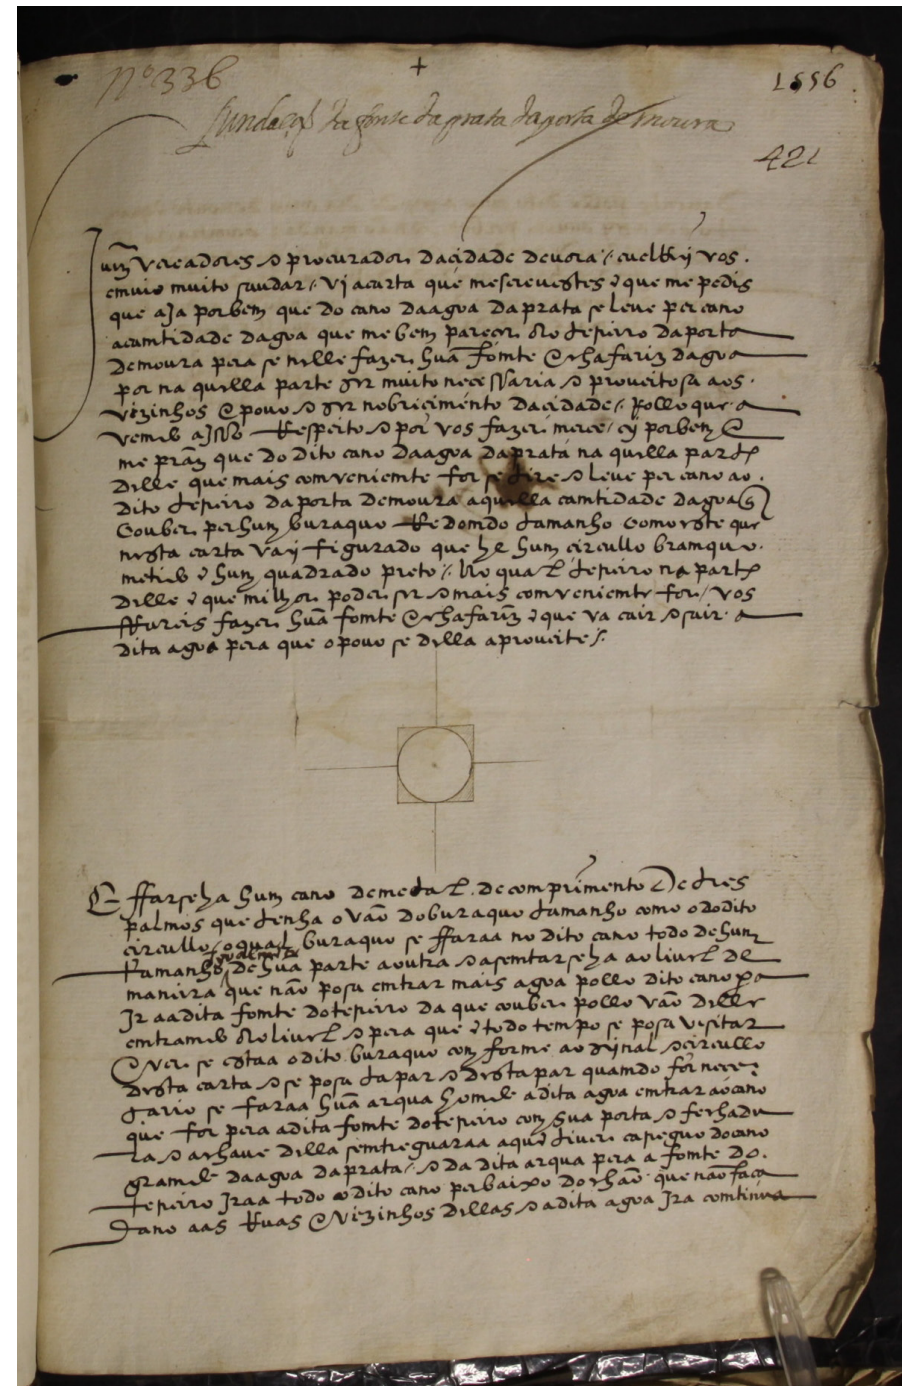 Nº 336
+
1556
fundaçã da fonte da prata da porta de moura
421
Juiz vereadores e procurador da cidade devora / eu el Rey vos
emvio muito saudar / vj a carta que me screvestes e que me pedis
que aja por bem que do cano da agoa da prata se leve per cano
a camtidade dagoa que me bem parecer ao terreiro da porta
de moura pera se nelle fazer huã fomte e chafariz dagoa
por na quella parte ser muito necessaria e proveitosa aos
vizinhos e povo e ser nobricimento da cidade / Pollo que a
vemdo a jsso Respeito e por vos fazer merce / ey por bem e
me praz que do dito cano da agoa da prata na quella parte
delle que mais comveniemte for se tire e leve per cano ao
dito terreiro da porta de moura aquella camtidade dagoa q
couber per hum buraquo Redomdo tamanho como este que
nesta carta vay figurado que he hum circullo bramquo
metido em hum quadrado preto / No qual terreiro na parte
delle em que milhor poder ser e mais comveniemte for / vos
ffareis fazer huã fomte e chafariz em que va cair e sair a
dita agoa pera que o povo se della aproveite /
E ffarseha hum cano de metal de comprimento de tres
palmos que tenha o vaõ do buraquo tamanho como o do dito
circullo / o qual buraquo se ffaraa no dito cano todo de hum
tamanho igualmente de huã parte a outra e asemtarseha ao livel de
maneira que não posa emtrar mais agoa pollo dito cano pa
Jr aa dita fomte do terreiro da que couber pollo vaõ delle
emtramdo ao livel e pera que em todo tempo se posa visitar
e ver se estaa o dito buraquo comforme ao synal e circullo
desta carta e se posa tapar e destapar quamdo for nece
sario se faraa huã arqua homde a dita agoa emtrar ao cano
que for pera a dita fomte do terreiro com sua porta e fechadu
ra e a chave della se emtreguaraa a quem tiver carreguo do cano
gramde da agoa da prata / e da dita arqua pera a fomte do
terreiro Jraa todo o dito cano per baixo do chaõ que não faça
dano aas Ruas e vizinhos dellas e a dita agoa Jra comtinua